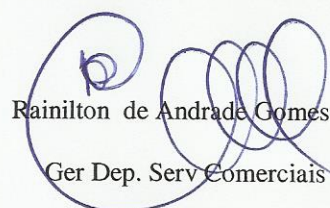 Rainilton de Andrade Gomes
Ger Dep. Serv Comerciais